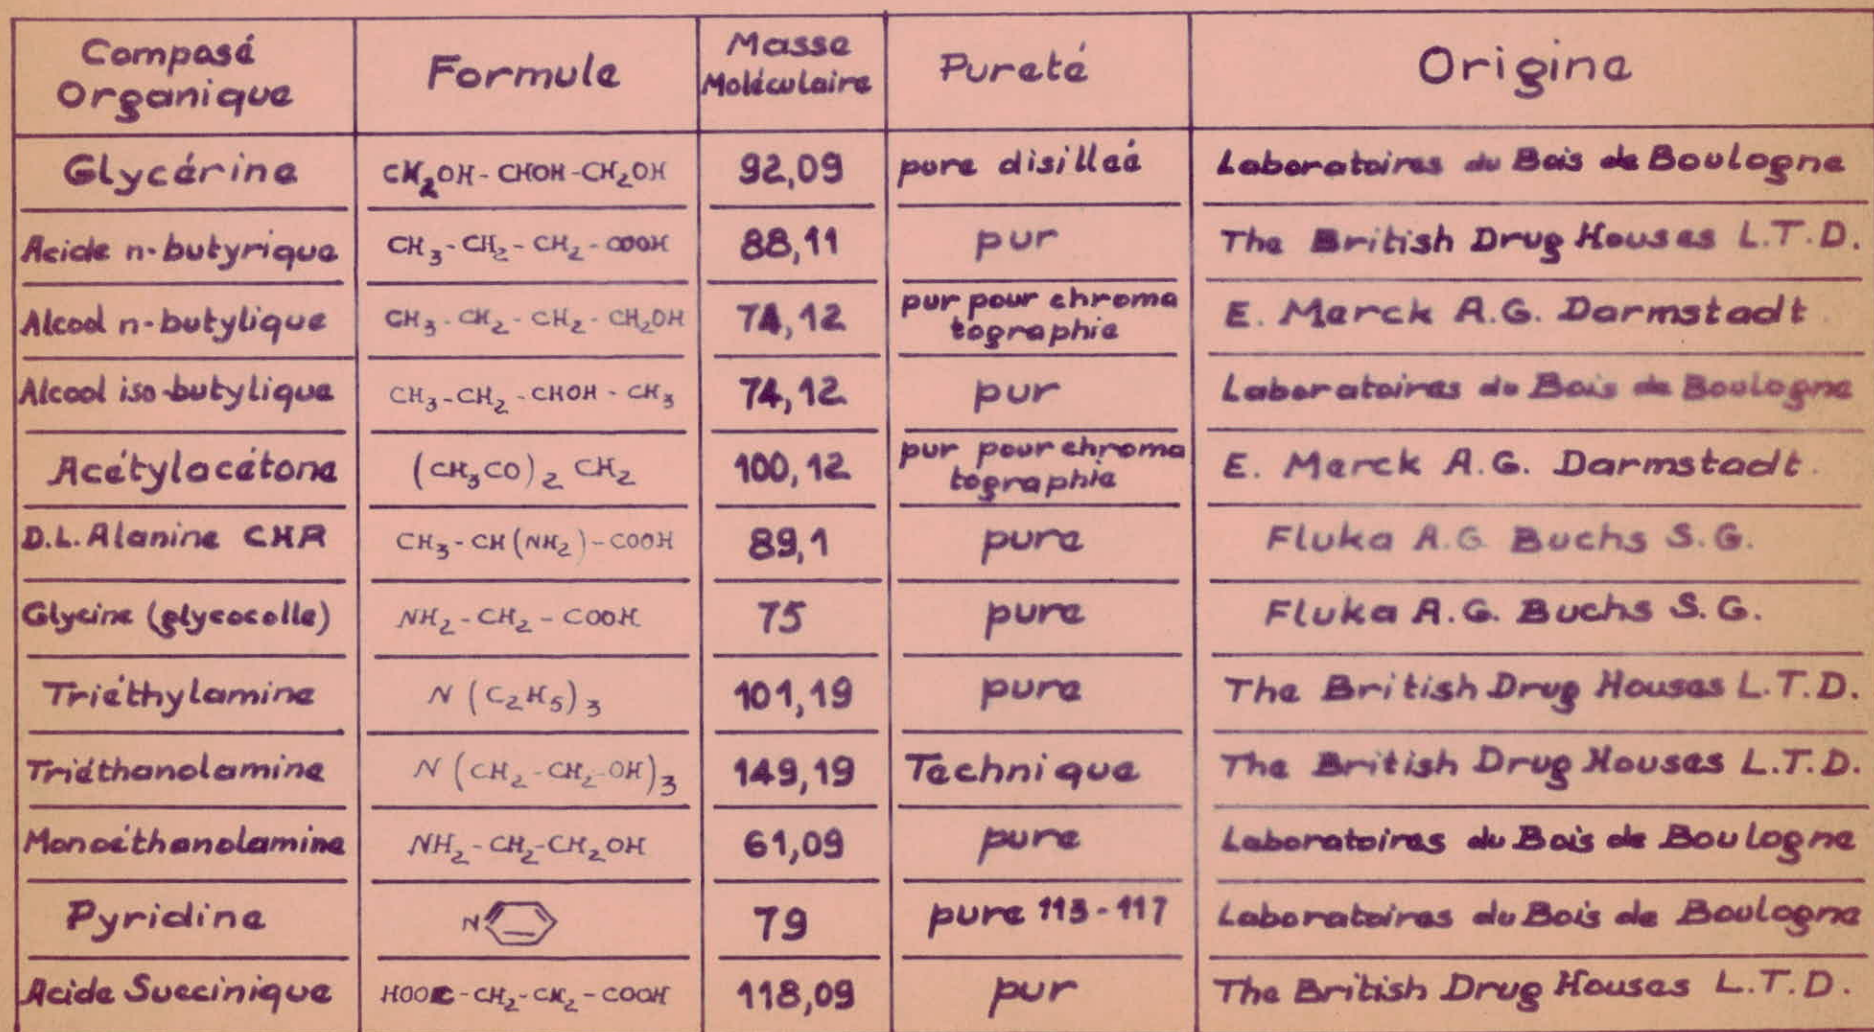 Composé Organique | Formule | Masse Moléculaire | Pureté | Origine
Glycérine | CH₂OH - CHOH - CH₂OH | 92,09 | pure disilleé | Laboratoires du Bois de Boulogne
Acide n-butyrique | CH₃ - CH₂ - CH₂ - COOH | 88,11 | pur | The British Drug Houses L.T.D.
Alcool n-butylique | CH₃ - CH₂ - CH₂ - CH₂OH | 74,12 | pur pour chroma tographie | E. Merck A.G. Darmstadt
Alcool iso-butylique | CH₃ - CH₂ - CHOH - CH₃ | 74,12 | pur | Laboratoires du Bois de Boulogne
Acétylacétone | (CH₃CO)₂ CH₂ | 100,12 | pur pour chroma tographie | E. Merck A.G. Darmstadt.
D.L. Alanine CHR | CH₃ - CH(NH₂) - COOH | 89,1 | pure | Fluka A.G Buchs S.G.
Glycine (glycocolle) | NH₂ - CH₂ - COOH | 75 | pure | Fluka A.G. Buchs S.G.
Triéthylamine | N (C₂H₅)₃ | 101,19 | pure | The British Drug Houses L.T.D.
Triéthanolamine | N (CH₂-CH₂-OH)₃ | 149,19 | Technique | The British Drug Houses L.T.D.
Monoéthanolamine | NH₂-CH₂-CH₂OH | 61,09 | pure | Laboratoires du Bois de Boulogne
Pyridine | N | 79 | pure 113-117 | Laboratoires du Bois de Boulogne
Acide Succinique | HOOC-CH₂-CH₂-COOH | 118,09 | pur | The British Drug Houses L.T.D.